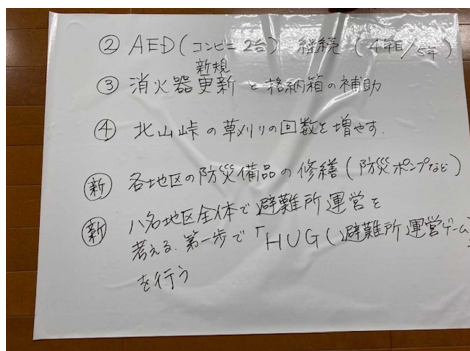 ② AED(コンビニ2台) 継続(4年目/5年)
新規
③ 消火器更新と格納箱の補助
④ 北山峠の草刈りの回数を増やす.
新 各地区の防災備品の修繕(防災ポンプなど)
新 八名地区全体で避難所運営を
考える.第一歩で「HUG(避難所運営ゲーム
を行う